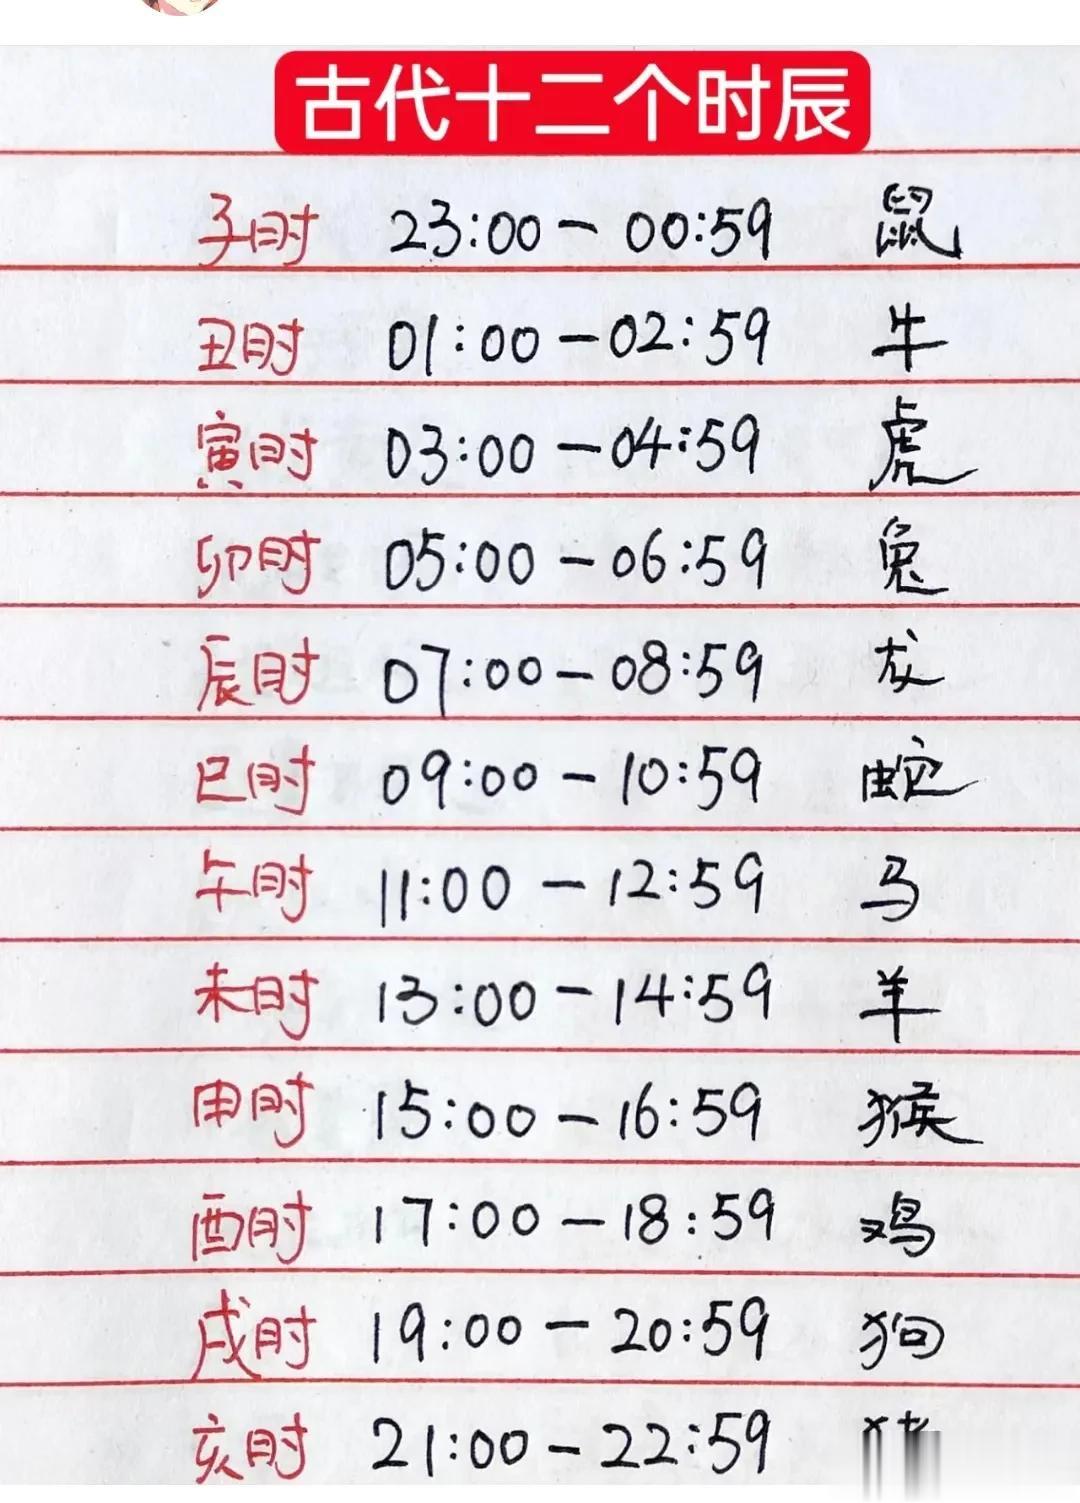 古代十二个时辰
子时 23:00－00:59 鼠
丑时 01:00－02:59 牛
寅时 03:00－04:59 虎
卯时 05:00－06:59 兔
辰时 07:00－08:59 龙
巳时 09:00－10:59 蛇
午时 11:00－12:59 马
未时 13:00－14:59 羊
申时 15:00－16:59 猴
酉时 17:00－18:59 鸡
戌时 19:00－20:59 狗
亥时 21:00－22:59